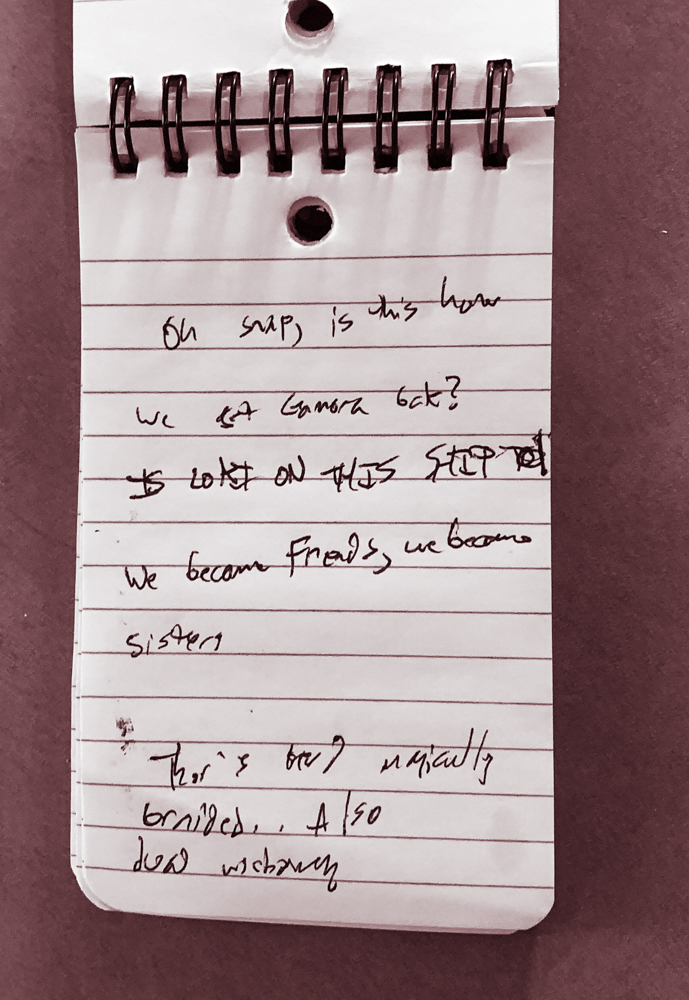 Oh snap, is this how
we get Gamora back?
IS LOKI ON THIS SHIP
We became Friends, we became
sisters
Thor's beard magically
braided.. Also
dual